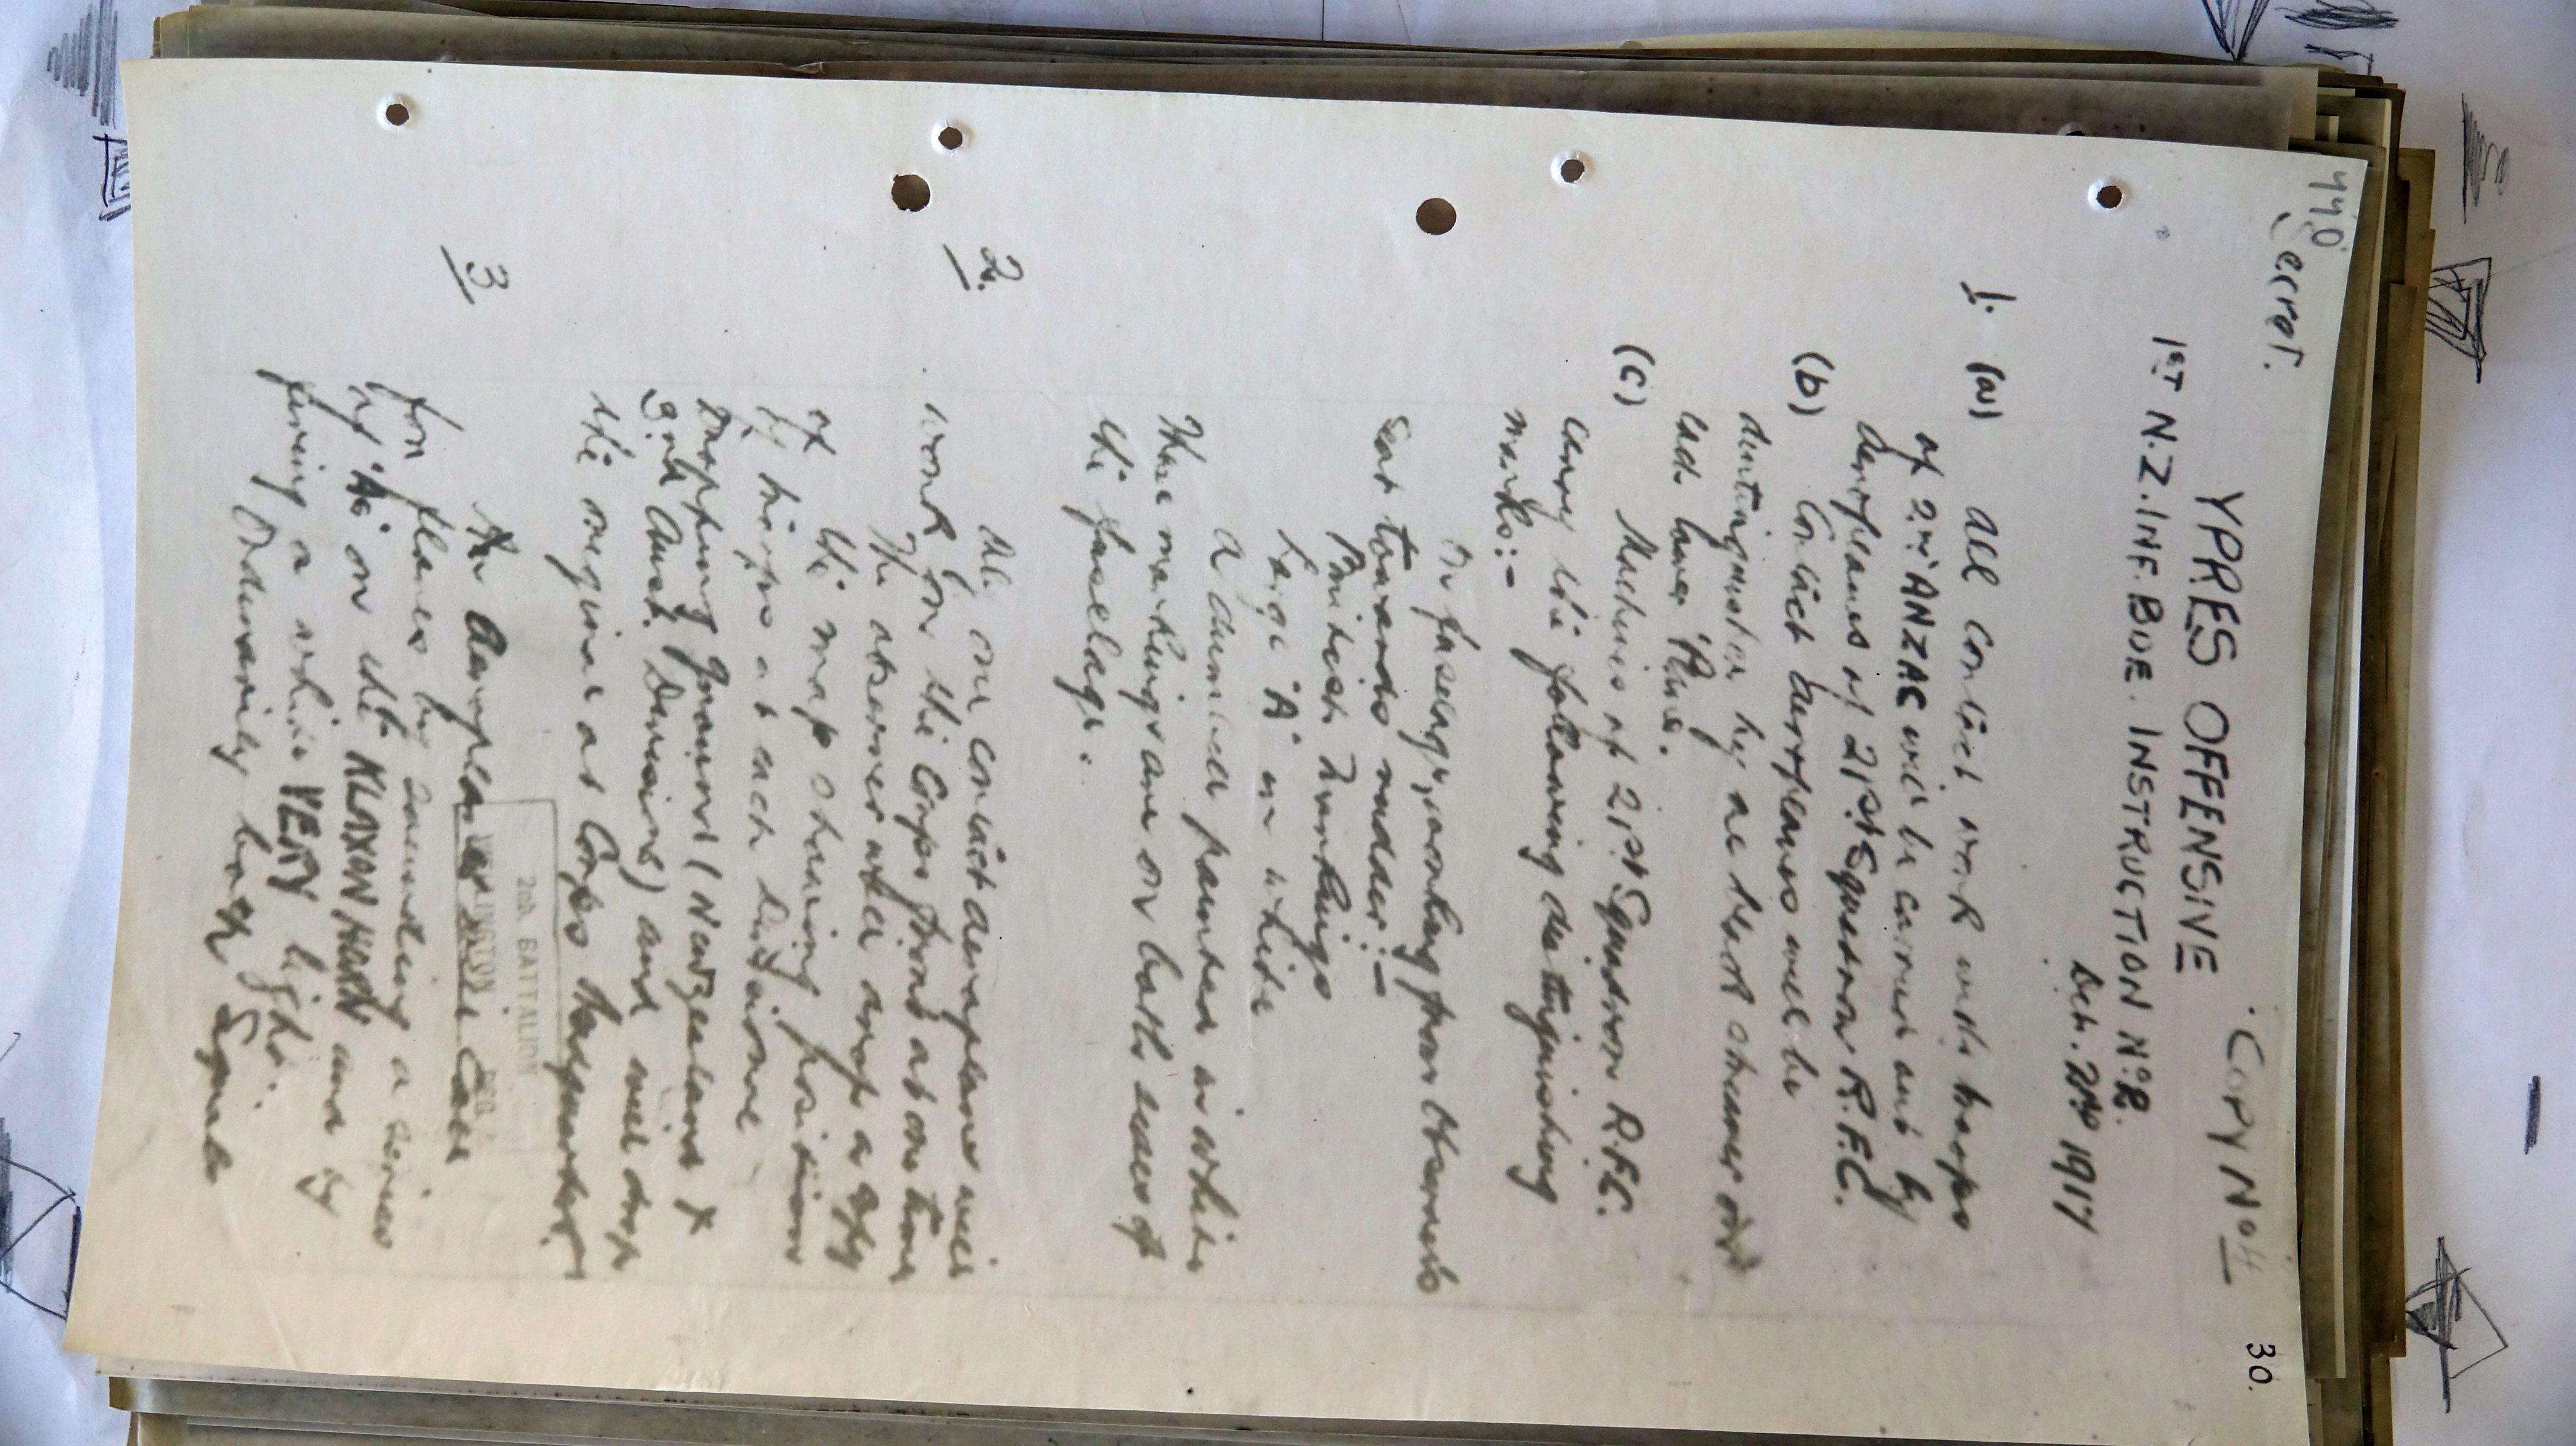 440
Secret.
30.
YPRES OFFENSIVE
COPY No 4
1ST N.Z. INF. BDE. INSTRUCTION No 2.
Oct. 2nd 1917
1. (a) All contact work with troops
of 2nd ANZAC will be carried out by
Aeroplanes of 21st Squadron R.F.C.
(b) Contact aeroplanes will be
distinguished by a black streamer on
each lower Plane.
(c) Machines of 21st Squadron R.F.C.
carry the following distinguishing
marks:-
On fuselage, working from Observer's
seat towards rudder:-
British Markings
Large "A" in white
A dumbell painted in white
These markings are on both sides of
the fuselage.
2. All our contact aeroplanes will
work for the Corps front at one time
The observer will drop a copy
of the map showing positions
of troops at each Division's
Dropping Ground (New Zealand &
3rd Aust. Divisions) and will drop
the original at Corps Headquarters.
3 An Aeroplane will call
for flares by sounding a series
of "A's" on the KLAXON HORN and by
firing a white VERY light.
Ordinarily both signals
2nd. BATTALION
WELLINGTON REG.